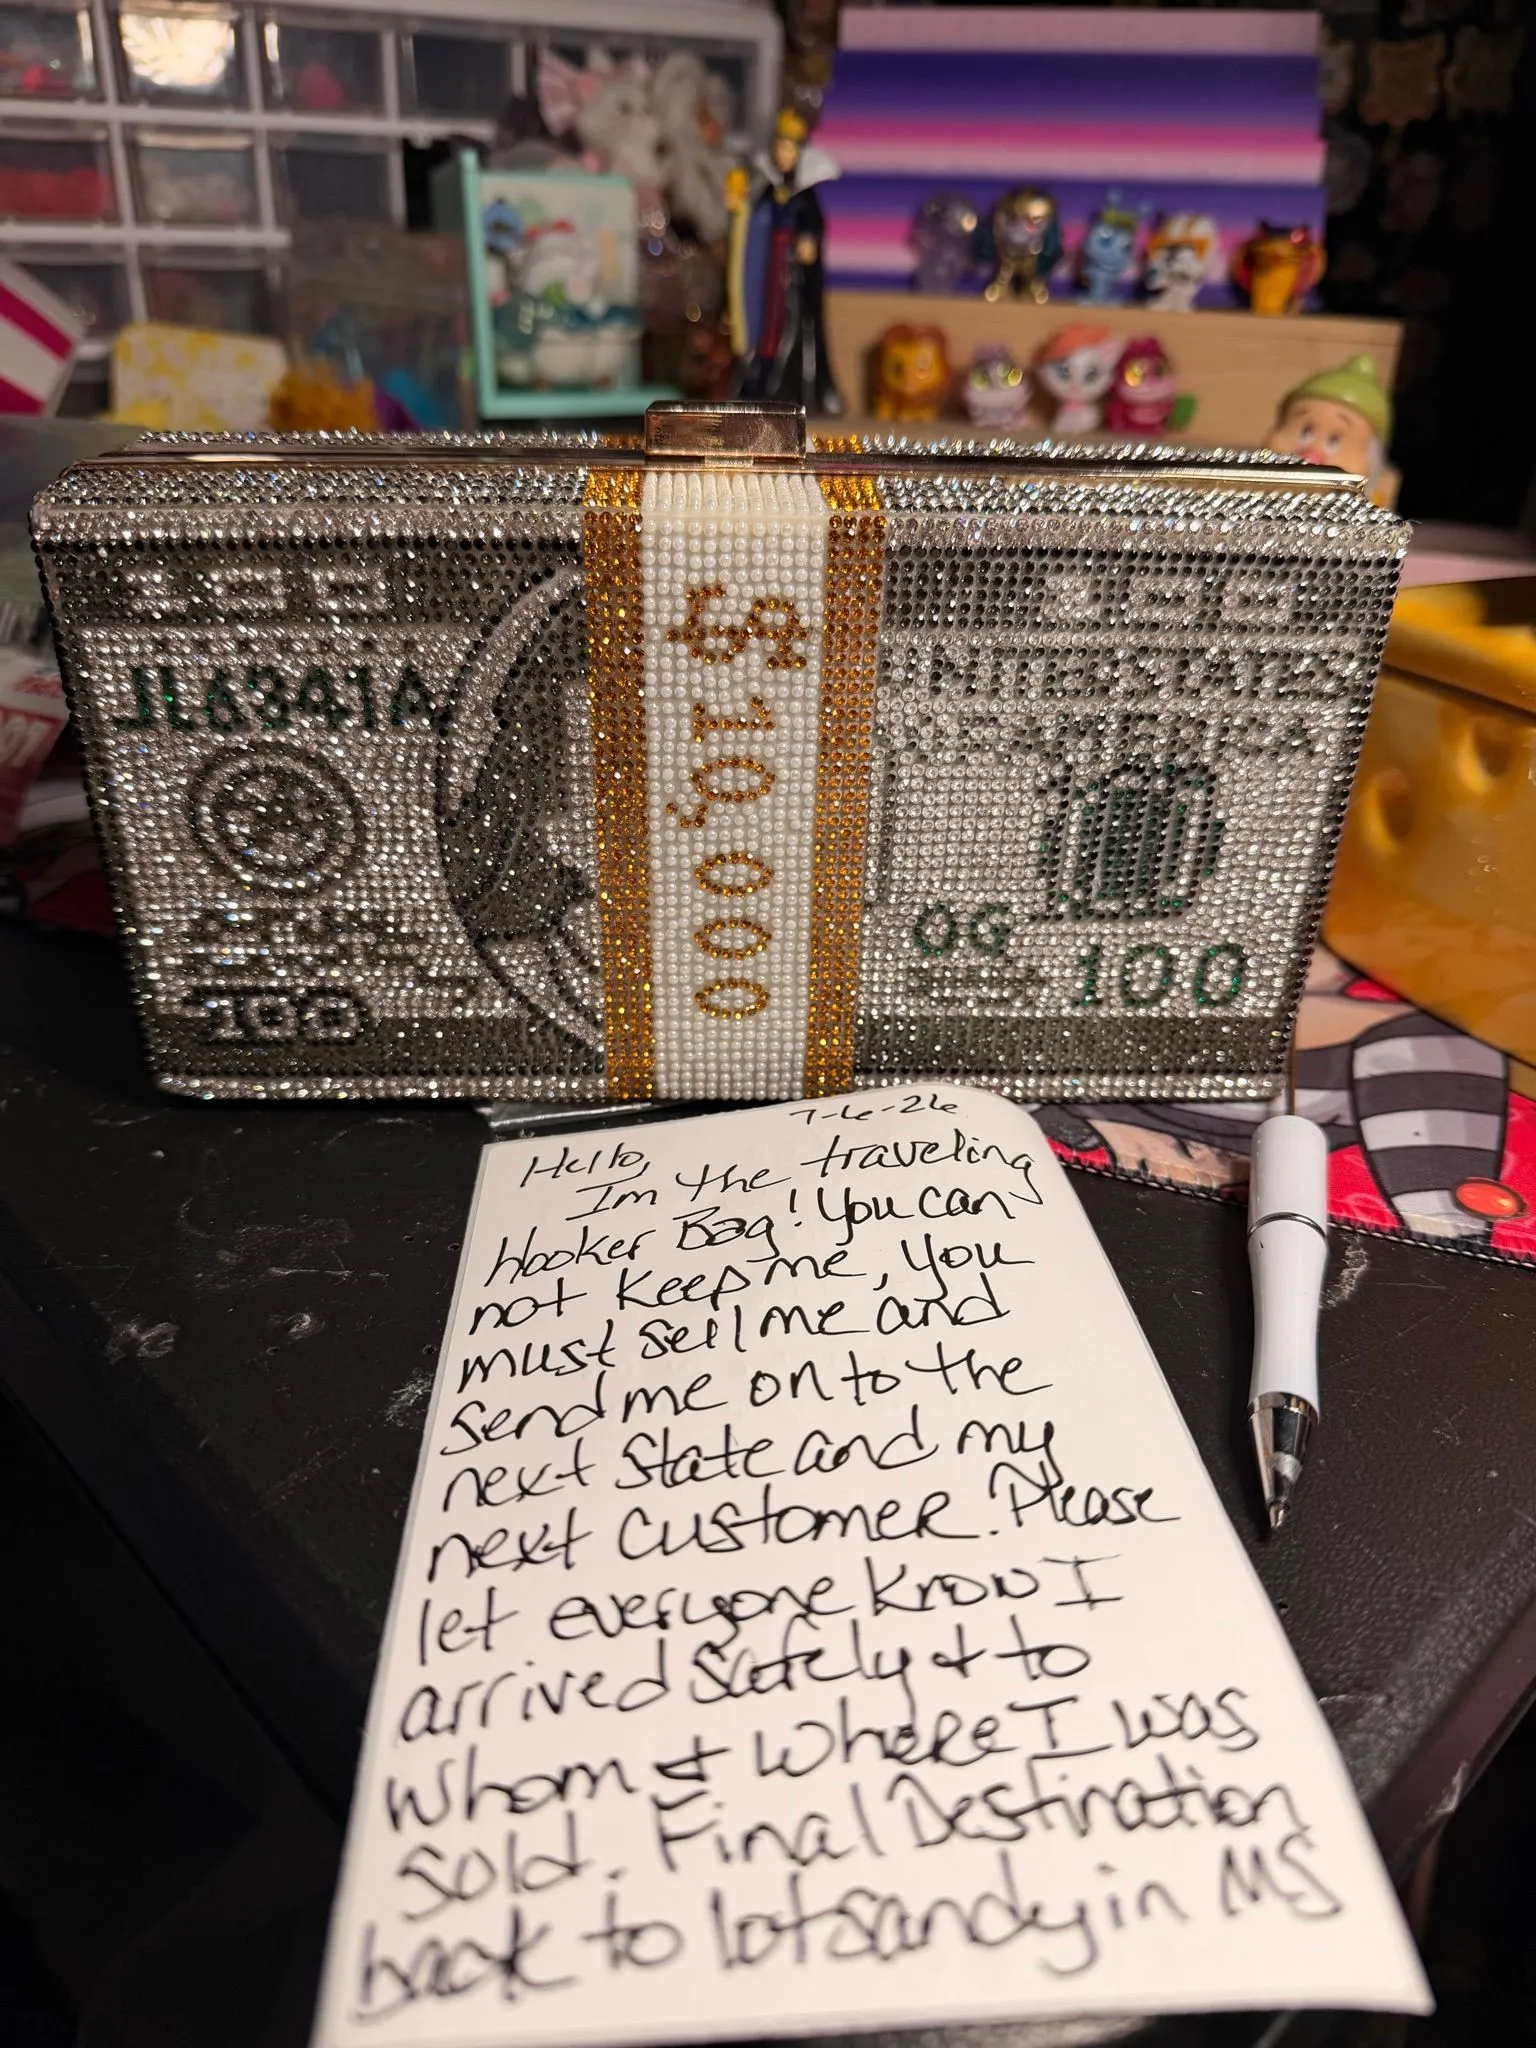 100
100
JL63414
UNITED STATES
OF AMERICA
$10,000
OG
100
100
7-6-26
Hello,
Im the traveling
hooker Bag! You can
not keep me, you
must sell me and
send me on to the
next state and my
next customer. Please
let everyone know I
arrived safely & to
whom & where I was
sold. Final Destination
back to lotsandy in MS